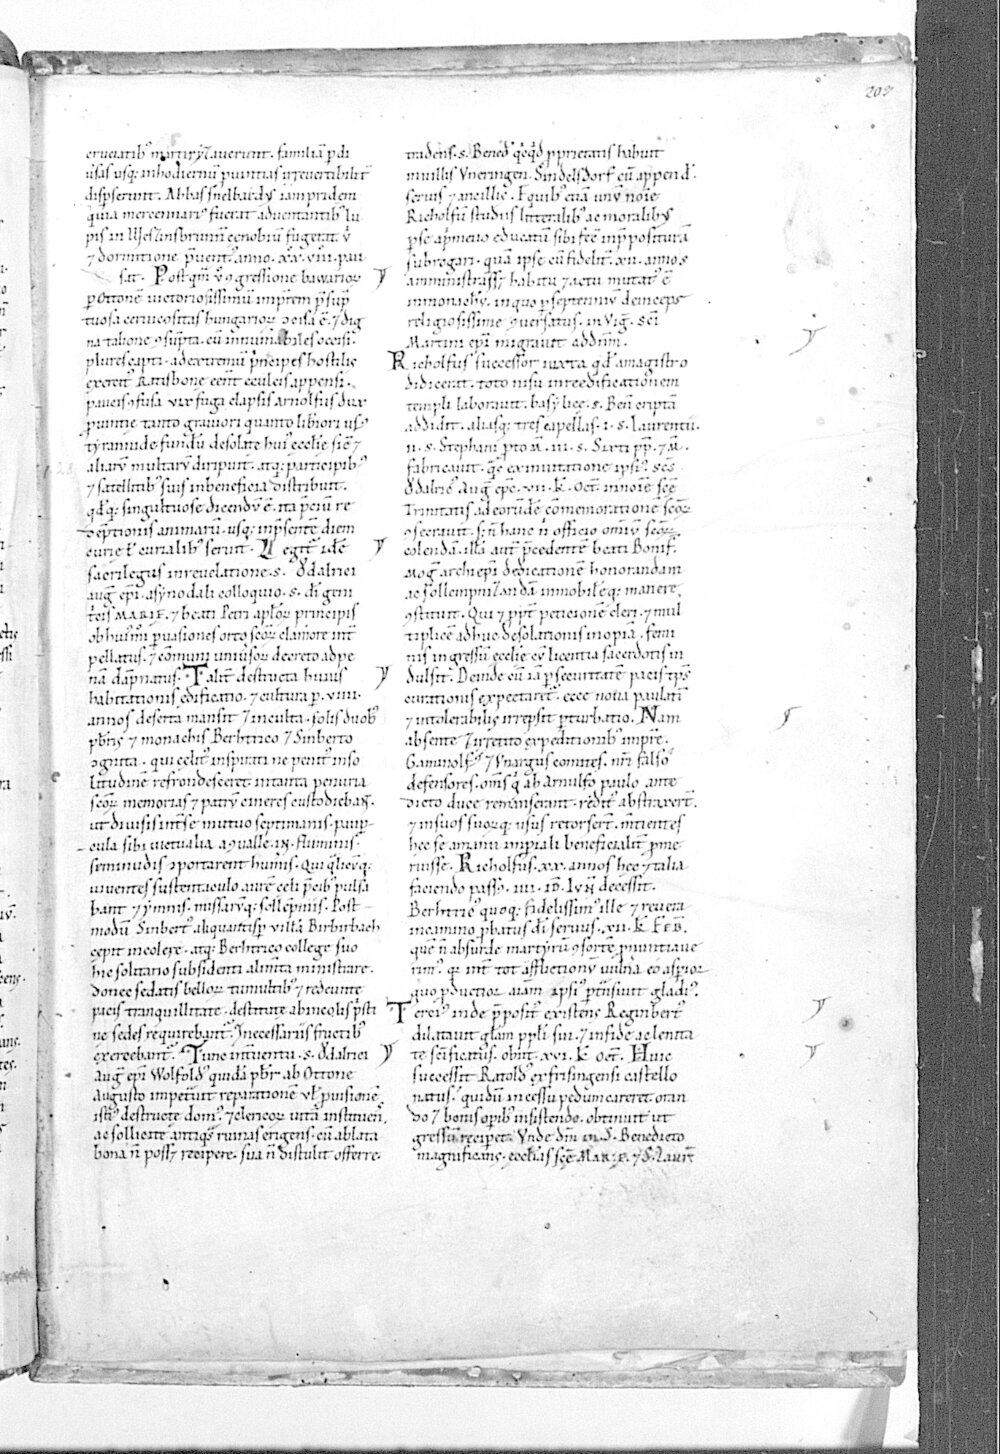 209
cruciatib; martirizauerunt. familiā p̄di
uisas usq; inhodiernū puintias irreuertibilit̄
disp̄serunt. Abbas snelbardꝰ iampridem
quia mercennariꝰ fuerat aduentantib; lu
pis in Wessinsbrunnen cenobiū fugerat. &
⁊ dormitione p̄uenit; anno. xx. viiii. pau
sat. Postqm̄ ꝯgressione bawarioꝝ
p Ottonē uictoriosissimū imp̄rem p̄sup
tuosa ceruicositas hungarioꝝ ꝯcisa ē. ⁊ dig
na talione ꝯsupta. cū innum̄abiles occisi.
plures capti. ad extremū p̄ncipes hostilis
exercitꝰ Ratisbone eēnt eculeis appensi.
paucis ꝯfusa uix fuga elapsis arnolfus dux
puintie tanto grauiori quanto lib̄iori usꝰ
tyrannide fundū desolate huiꝰ ecclie sic ⁊
aliarū multarū diripuit. atq; participib;
⁊ satellitib; suis inbeneficia distribuit.
qd̄q; singultuose dicendū ē. ita peiū re
ceptionis animarū. usq; inp̄sentē diem
curie ł curialib; seruit. Legitꝰ idē
sacrilegus inreuelatione. s. Ǒdalrici
auḡ. epi. asynodali colloquio. s. di geni
tricis MARIE. ⁊ beati Petri aplōꝝ principis
ob hui;mi puasiones orto scōꝝ clamore int̄
pellatus. ⁊ cōmuni uniu̅soꝝ decreto ad pe
nā dāpnatus. Talit̄ destructa huius
habitationis edificatio. ⁊ cultura p. viiii.
annos deserta mansit ⁊ inculta. solis duob;
pb̄ris ⁊ monachis Berhtrico ⁊ Sinberto
ꝯgnita. qui celit; inspirati ne penit; inso
litudinē refrondesceret. intanta penuria
scōꝝ memorias ⁊ patrū cineres custodiebant.
ut diuisis int̄se mutuo septimanis. puip
cula sibi uictualia aqualle. IN. fluminis.
seminudis ꝯportarent humis. Qui q̄licūq;
uiuentes sustentaculo aurē celi p̄cib; pulsa
bant ⁊ ymnis. missarūq; sollēpniis. Post
modū Sinbert; aliquantisp uillā Birbirbach
cepit incolere. atq; Berhtrico college suo
hic solitario subsidenti alim̄ta ministrare.
donec sedatis bellōꝝ tumultib; ⁊ redeunte
pacis tranquillitate. destitute abincolis p̄sti
ne sedes requirebant. ⁊ necessariis fructib;
exercebant. Tunc intuentu. s. Ǒdalrici
auḡ epi Wolfoldꝰ quidā pbr̄ ab Ottone
augusto impetrauit reparationem ł puisionē
istiꝰ destructe domꝰ. ⁊ clericoꝝ uitā instituen̄.
ac sollicite antiquas ruinas erigens. cū ablata
bona n̄ possꝫ recipere. sua n̄ distulit offerre.
tradens. s. Bened̄. quicqd̄ pprietatis habuit
inuillis Vneringen. Sindelsdorf cū append̄.
seruis ⁊ ancillis. Equib; etiā unū noīe
Richolfū studiis litteralib; ac moralib;
pse apmeuo educatū sibi fec̄ inp̄posituꝛā
subrogari. quā ipse cū fidelit̄. xii. annos
amministrassꝫ. habitu ⁊ actu mutatꝰ ē
inmonichū. inquo pseptenniū deinceps
religiosissime ꝯuersatus. in Viḡ. Sci
Martini epi migrauit addnm̄.
Richolfus successor iuxta qd̄ amagistro
didicerat. toto nisu inreedificationem
templi laborauit. basylice. s. Ben̄ criptā
addidit. aliasq; tres capellas. i. s. Laurentii.
ii. s. Stephani pto m̄. iii. s. Sixti pp̄. ⁊ m̄.
fabricauit. qs̄ ex inuitatione ipsiꝰ scs̄
Ǒdalricꝰ Auḡ epc̄. vii. k̄. Oct. innoīe scē
Trinitatis ad eorundē cōmemoratione scōꝝ
ꝯsecrauit. sꝫ n̄ hanc n̄ officio omiū scōꝝ
colendā. illā aut p̄cedentē beati Bonif̄.
Moḡ archiepi dedicationē honorandam
ac sollempnizandā inmobilēq; manere
ꝯstituit. Qui ⁊ ppt̄ peticionē cleri. ⁊ mul
tiplicē adhuc desolationis inopiā. femi
nis ingressū ecclie cū licentia sacerdotis in
dulsit. Deinde cū iā psecuritatē pacis tp̄s
curationis expectaret. ecce noua paulatī
⁊ intolerabilis irrepsit pturbatio. Nam
absente ⁊ irretito expeditionib; impr̄e.
Gaminolfꝰ ⁊ Vnargus comites. nr̄i falsoꝰ
defensores. oms̄ q̄ ab Arnulfo paulo ante
dicto duce reman̄serant. redit; abstraxerт̄.
⁊ insuos suorq; usus retorserт̄. m̄tientes
hec se amanu imp̄iali beneficialit̄ pme
ruisse. Richolfus. xx. annos hec ⁊ talia
faciendo passꝰ. iiii. ID. IVN̄ decessit.
Berhtricꝰ quoq; fidelissimꝰ ille ⁊ reuera
incamino pbatus di seruus. xii. K. FEB̄.
quē n̄ absurde martyrū ꝯsortē pnuntiaue
rim̄. qr̄ int̄ tot afflictionū uuln̄a eo asprior
quo pductior aīam ipsiꝰ ptn̄siuit gladiꝰ.
Terciꝰ inde p̄positꝰ existens Reginbert;
dilatauit glām ppli sui. ⁊ infide ac lenita
te scīficatus. obiit. xvi. K Oct. Huic
successit Ratoldꝰ ex frisingensi castello
natus. quidū incessu pedum careret. oran
do ⁊ bonis opib; insistendo. obtinuit ut
gressū recipet. Vnde dīm in. S. Benedicto
magnificans. ecclias scē MARIE. ⁊ S. Laurт̄